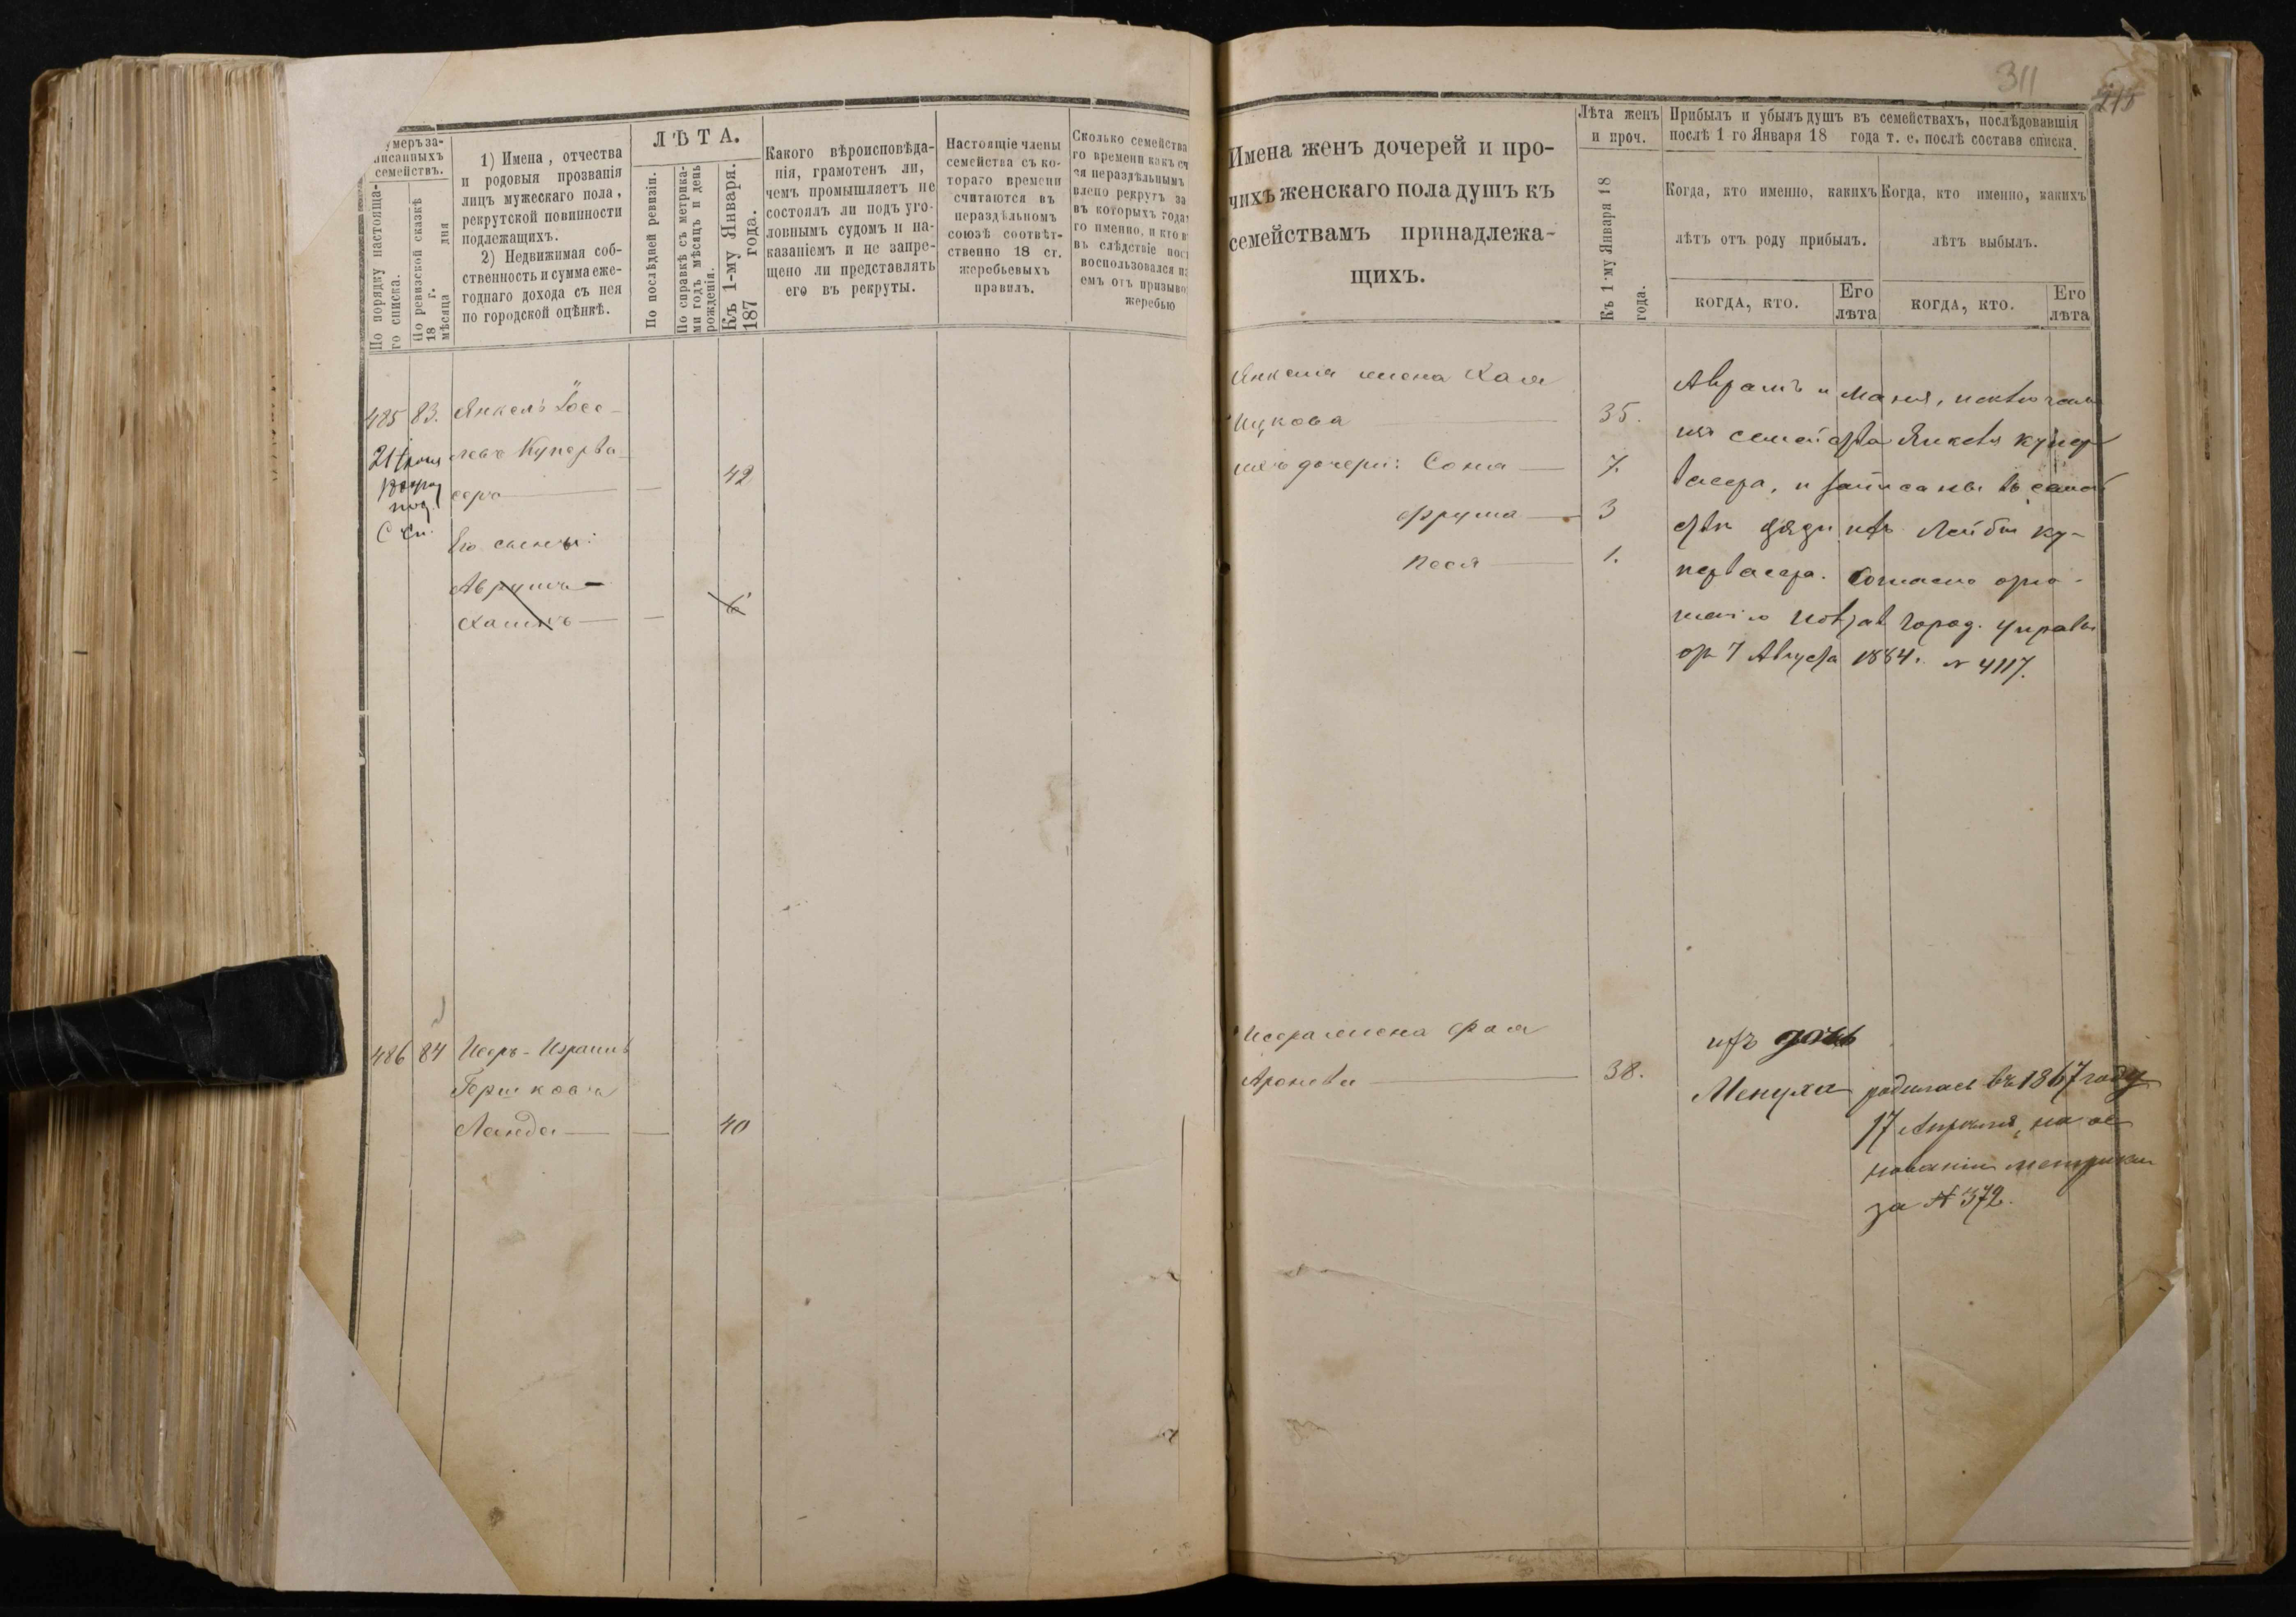 311
Нумеръ за-
писанныхъ
семействъ.
По порядку настояща-
го списка.
По ревизской сказкѣ
18 г. дня
мѣсяца
1) Имена, отчества
и родовыя прозванія
лицъ мужескаго пола,
рекрутской повинности
подлежащихъ.
2) Недвижимая соб-
ственность и сумма еже-
годнаго дохода съ нея
по городской оцѣнкѣ.
ЛѢТА.
По послѣдней ревизіи.
По справкѣ съ метрика-
ми годъ мѣсяцъ и день
рожденія.
Къ 1-му Января.
187 года.
Какого вѣроисповѣда-
нія, грамотенъ ли,
чемъ промышляетъ не
состоялъ ли подъ уго-
ловнымъ судомъ и на-
казаніемъ и не запре-
щено ли представлять
его въ рекруты.
Настоящіе члены
семейства съ ко-
тораго времени
считаются въ
нераздѣльномъ
союзѣ соотвѣт-
ственно 18 ст.
жеребьевыхъ
правилъ.
Сколько семейства
го времени какъ сч
ся нераздѣльнымъ
влено рекрутъ за
въ которыхъ года
го именно, и кто в
въ слѣдствіе пос
воспользовался п
емъ отъ призыво
жеребью
485 83. Янкель Іосе-
левъ Куперва-
серъ 42
Его сыновья:
Аврумъ-
Хаимъ 6
486 84 Исеръ-Израиль
Гершковъ
Ланда 40
Имена женъ дочерей и про-
чихъ женскаго пола душъ къ
семействамъ принадлежа-
щихъ.
Лѣта женъ
и проч.
Къ 1-му Января 18
года.
Прибылъ и убылъ душъ въ семействахъ, послѣдовавшія
послѣ 1-го Января 18 года т. е. послѣ состава списка.
Когда, кто именно, какихъ
лѣтъ отъ роду прибылъ.
Когда, кто именно, какихъ
лѣтъ выбылъ.
когда, кто.
Его
лѣта
когда, кто.
Его
лѣта
Янкеля жена Хая
Ицкова 35.
ихъ дочери: Сона 7.
Фрума 3
Песя 1.
Аврамъ и Маня, исключены
изъ семейства Янкеля Купер
васера, и записаны въ семей
стве дяди ихъ Лейбы Ку-
первасера. Согласно отно-
шенію город. управы
от 7 Августа 1884 г. № 4117.
Исера жена Фаля
Аронова 38.
ихъ дочь
Менуха родилась въ 1867 году
17 Апреля, на ос
нованіи метрики
за № 372.